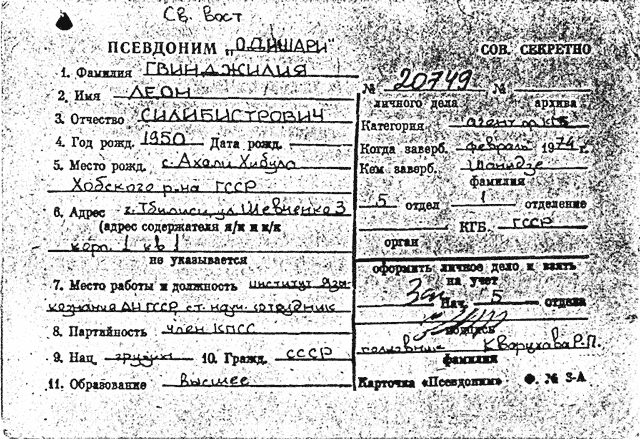 Св. Вост
ПСЕВДОНИМ „ОДИШАРИ"
СОВ. СЕКРЕТНО
1. Фамилия ГВИНДЖИЛИЯ
2. Имя ЛЕОН
3. Отчество СИЛИБИСТРОВИЧ
4. Год рожд. 1950 Дата рожд.
5. Место рожд. с. Ахали Хибула
Хобского р-на ГССР
6. Адрес г. Тбилиси, ул Шевченко 3
(адрес содержателя я/к и к/к
корп. 1 кв 1
не указывается
7. Место работы и должность институт Язы-
кознания АН ГССР ст. науч. сотрудник
8. Партийность член КПСС
9. Нац. грузин 10. Гражд. СССР
11. Образование высшее
№ 20749 №
личного дела архива
Категория агент ор. КГБ
Когда заверб. февраль 1974 г.
Кем заверб.
фамилия
5 отдел 1 отделение
КГБ. ГССР
орган
оформить личное дело и взять
на учет
Нач. 5 отдела
подпись
полковник Кварухава Р. П.
фамилия
Карточка «Псевдоним» Ф. № 3-А